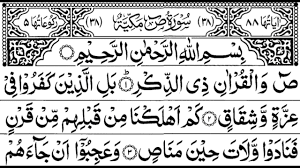 اٰیَاتُهَا ٨٨ (٣٨) سُوْرَةُ صٓ مَكِّیَّةٌ (٣٨) رُكُوْعَاتُهَا ٥
بِسْمِ اللّٰهِ الرَّحْمٰنِ الرَّحِیْمِ
صٓ وَالْقُرْاٰنِ ذِی الذِّكْرِ ۝١ بَلِ الَّذِیْنَ كَفَرُوْا فِیْ
عِزَّةٍ وَّشِقَاقٍ ۝٢ كَمْ اَهْلَكْنَا مِنْ قَبْلِهِمْ مِّنْ قَرْنٍ
فَنَادَوْا وَّلَاتَ حِیْنَ مَنَاصٍ ۝٣ وَعَجِبُوْۤا اَنْ جَآءَهُمْ